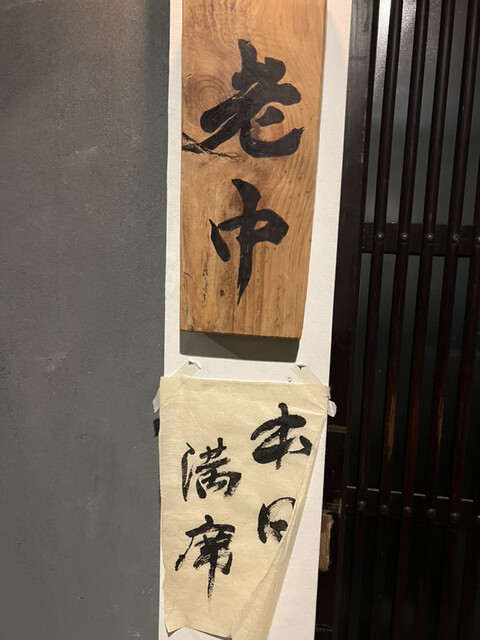 老中
本日
満席